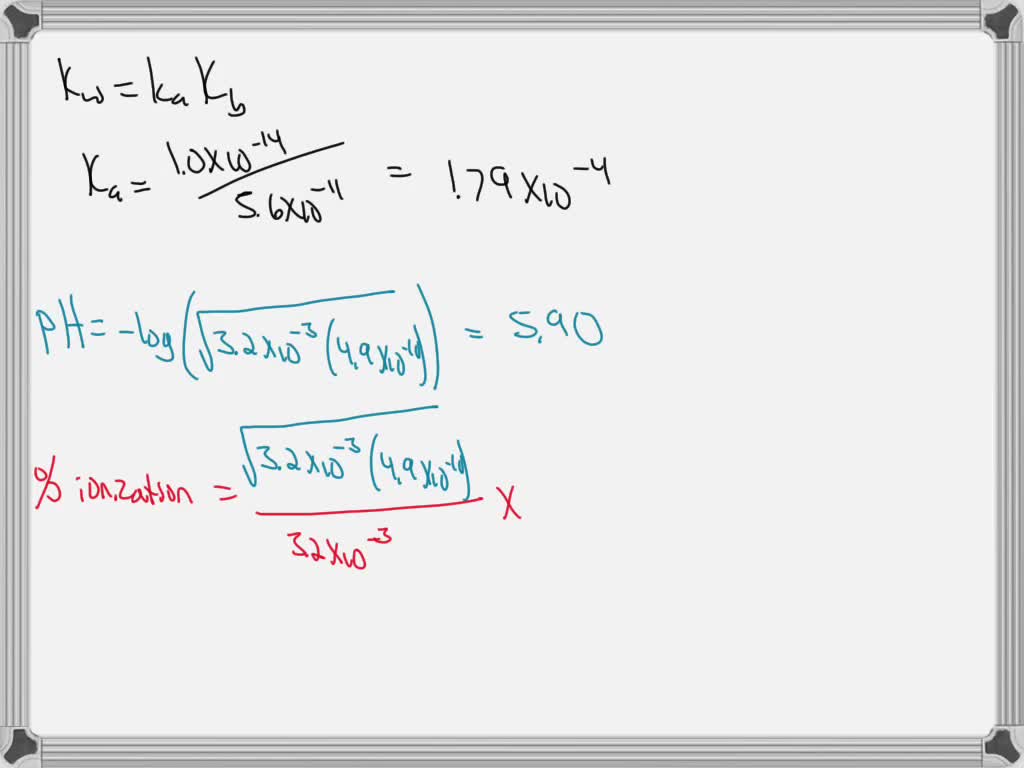 Kw = Ka Kb
Ka = 1.0x10^-14 / 5.6x10^-11 = 1.79x10^-4
pH = -log(√3.2x10^-3 (4.9x10^-10)) = 5.90
% ionization = √3.2x10^-3 (4.9x10^-10) / 3.2x10^-3 x